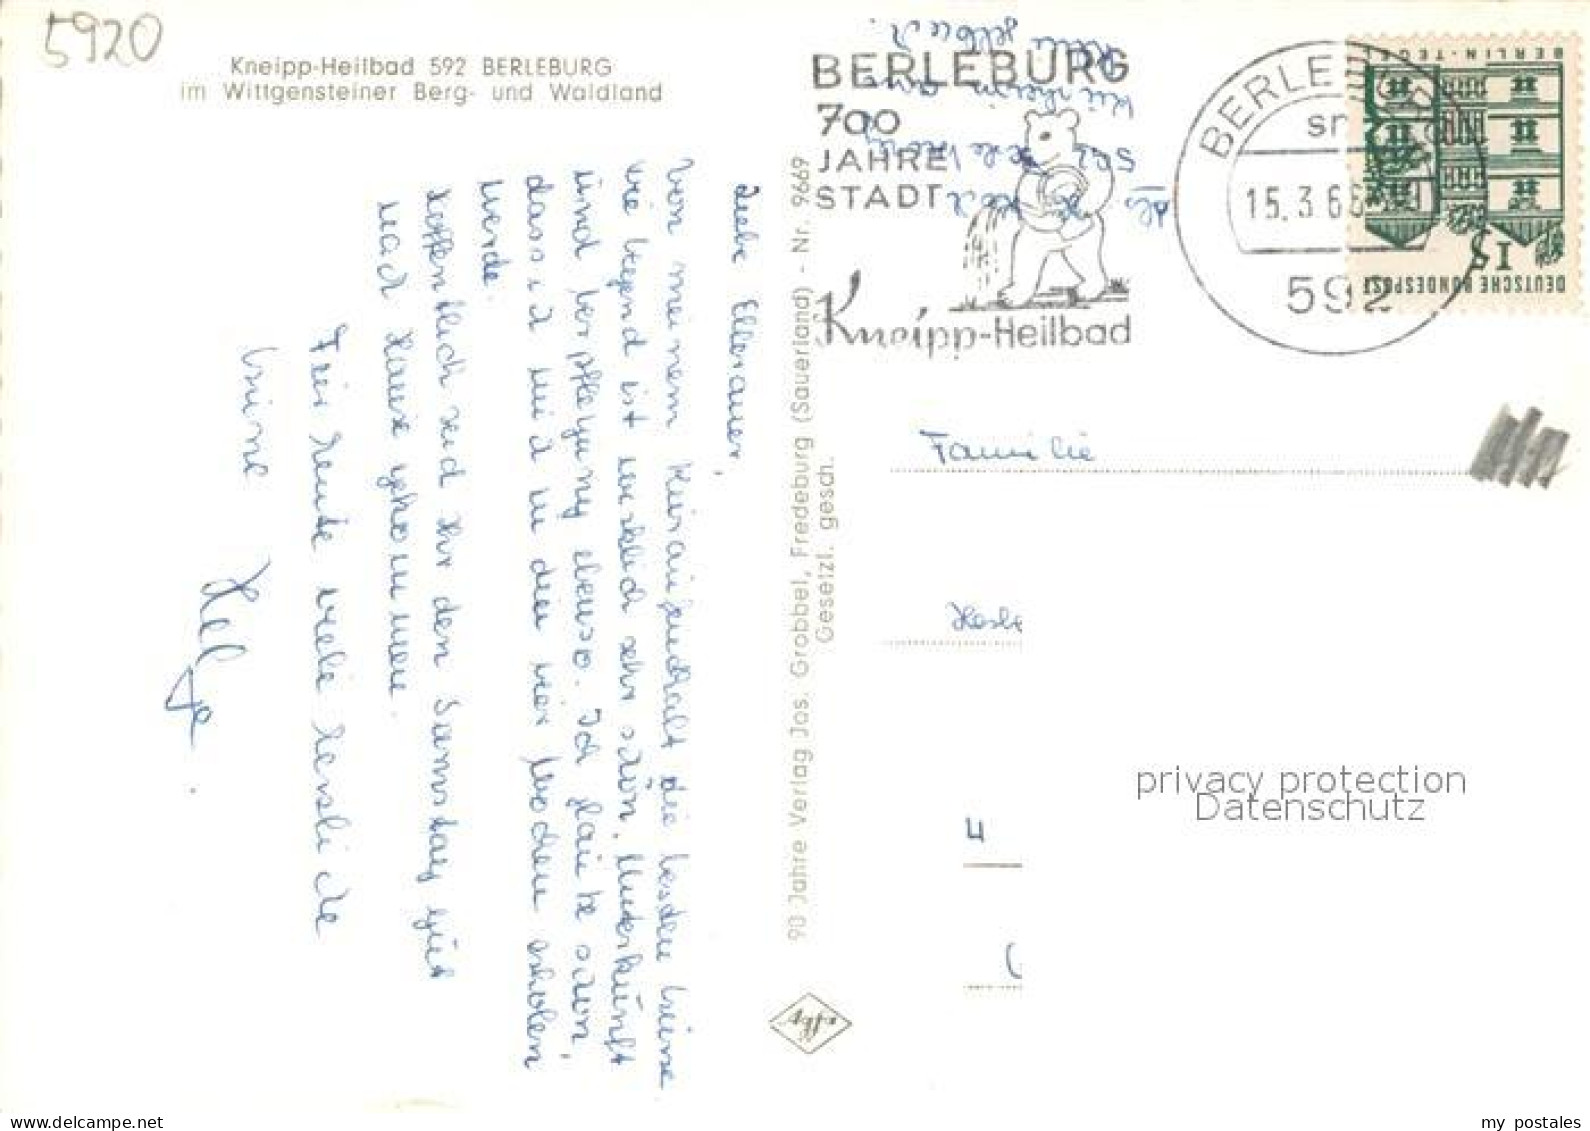 5920
Kneipp-Heilbad 592 BERLEBURG
im Wittgensteiner Berg- und Waldland
Liebe Ellerauer,
von meinem Kuraufenthalt die besten Grüsse
die Gegend ist wirklich sehr schön, Unterkunft
und Verpflegung ebenso. Ich glaube schon,
dass ich mich in den vier Wochen erholen
werde.
Hoffentlich seid Ihr den Samstag gut
nach Hause gekommen.
Für heute viele herzliche
Grüsse
Helga.
90 Jahre Verlag Jos. Grobbel, Fredeburg (Sauerland) - Nr. 9669
Gesetzl. gesch.
BERLEBURG
700
JAHRE
STADT
Kneipp-Heilbad
BERLEBURG
15.3.66
592
DEUTSCHE BUNDESPOST
15
BERLIN-TEGEL
Familie
privacy protection
Datenschutz
my postales